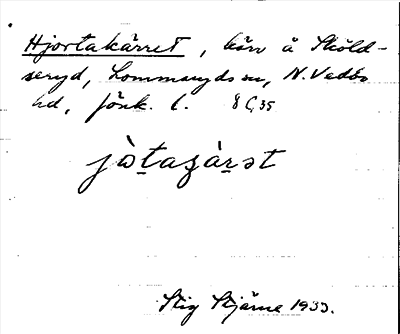 Hjortakärret, kärr å Sköld-
seryd, Lommaryds sn, N. Vedbo
hd, Jönk. l. 8 G 35
jòtaʒàrət
Stig Stjärne 1933.